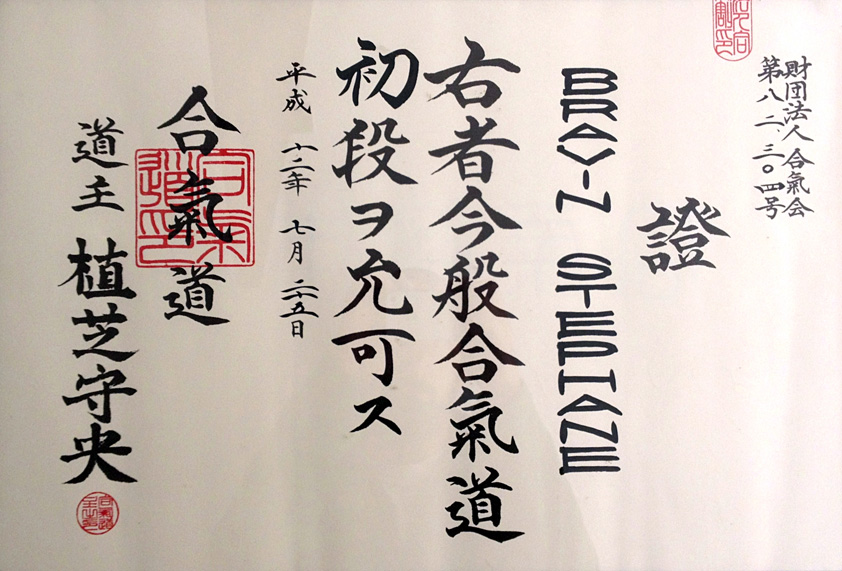 財団法人 合氣会
第八二、三〇四号
證
BRAVIN STEPHANE
右者今般合氣道
初段ヲ允可ス
平成 十二年 七月 二十五日
合氣道
合氣道印
道主 植芝守央